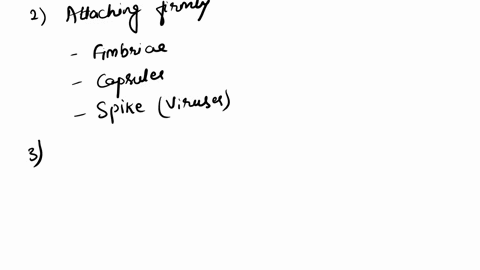 2) Attaching firmly
- Fimbriae
- Capsules
- Spike (Viruses)
3)